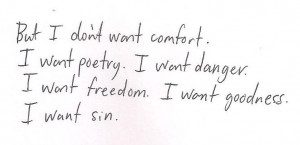 But I don't want comfort.
I want poetry. I want danger.
I want freedom. I want goodness.
I want sin.